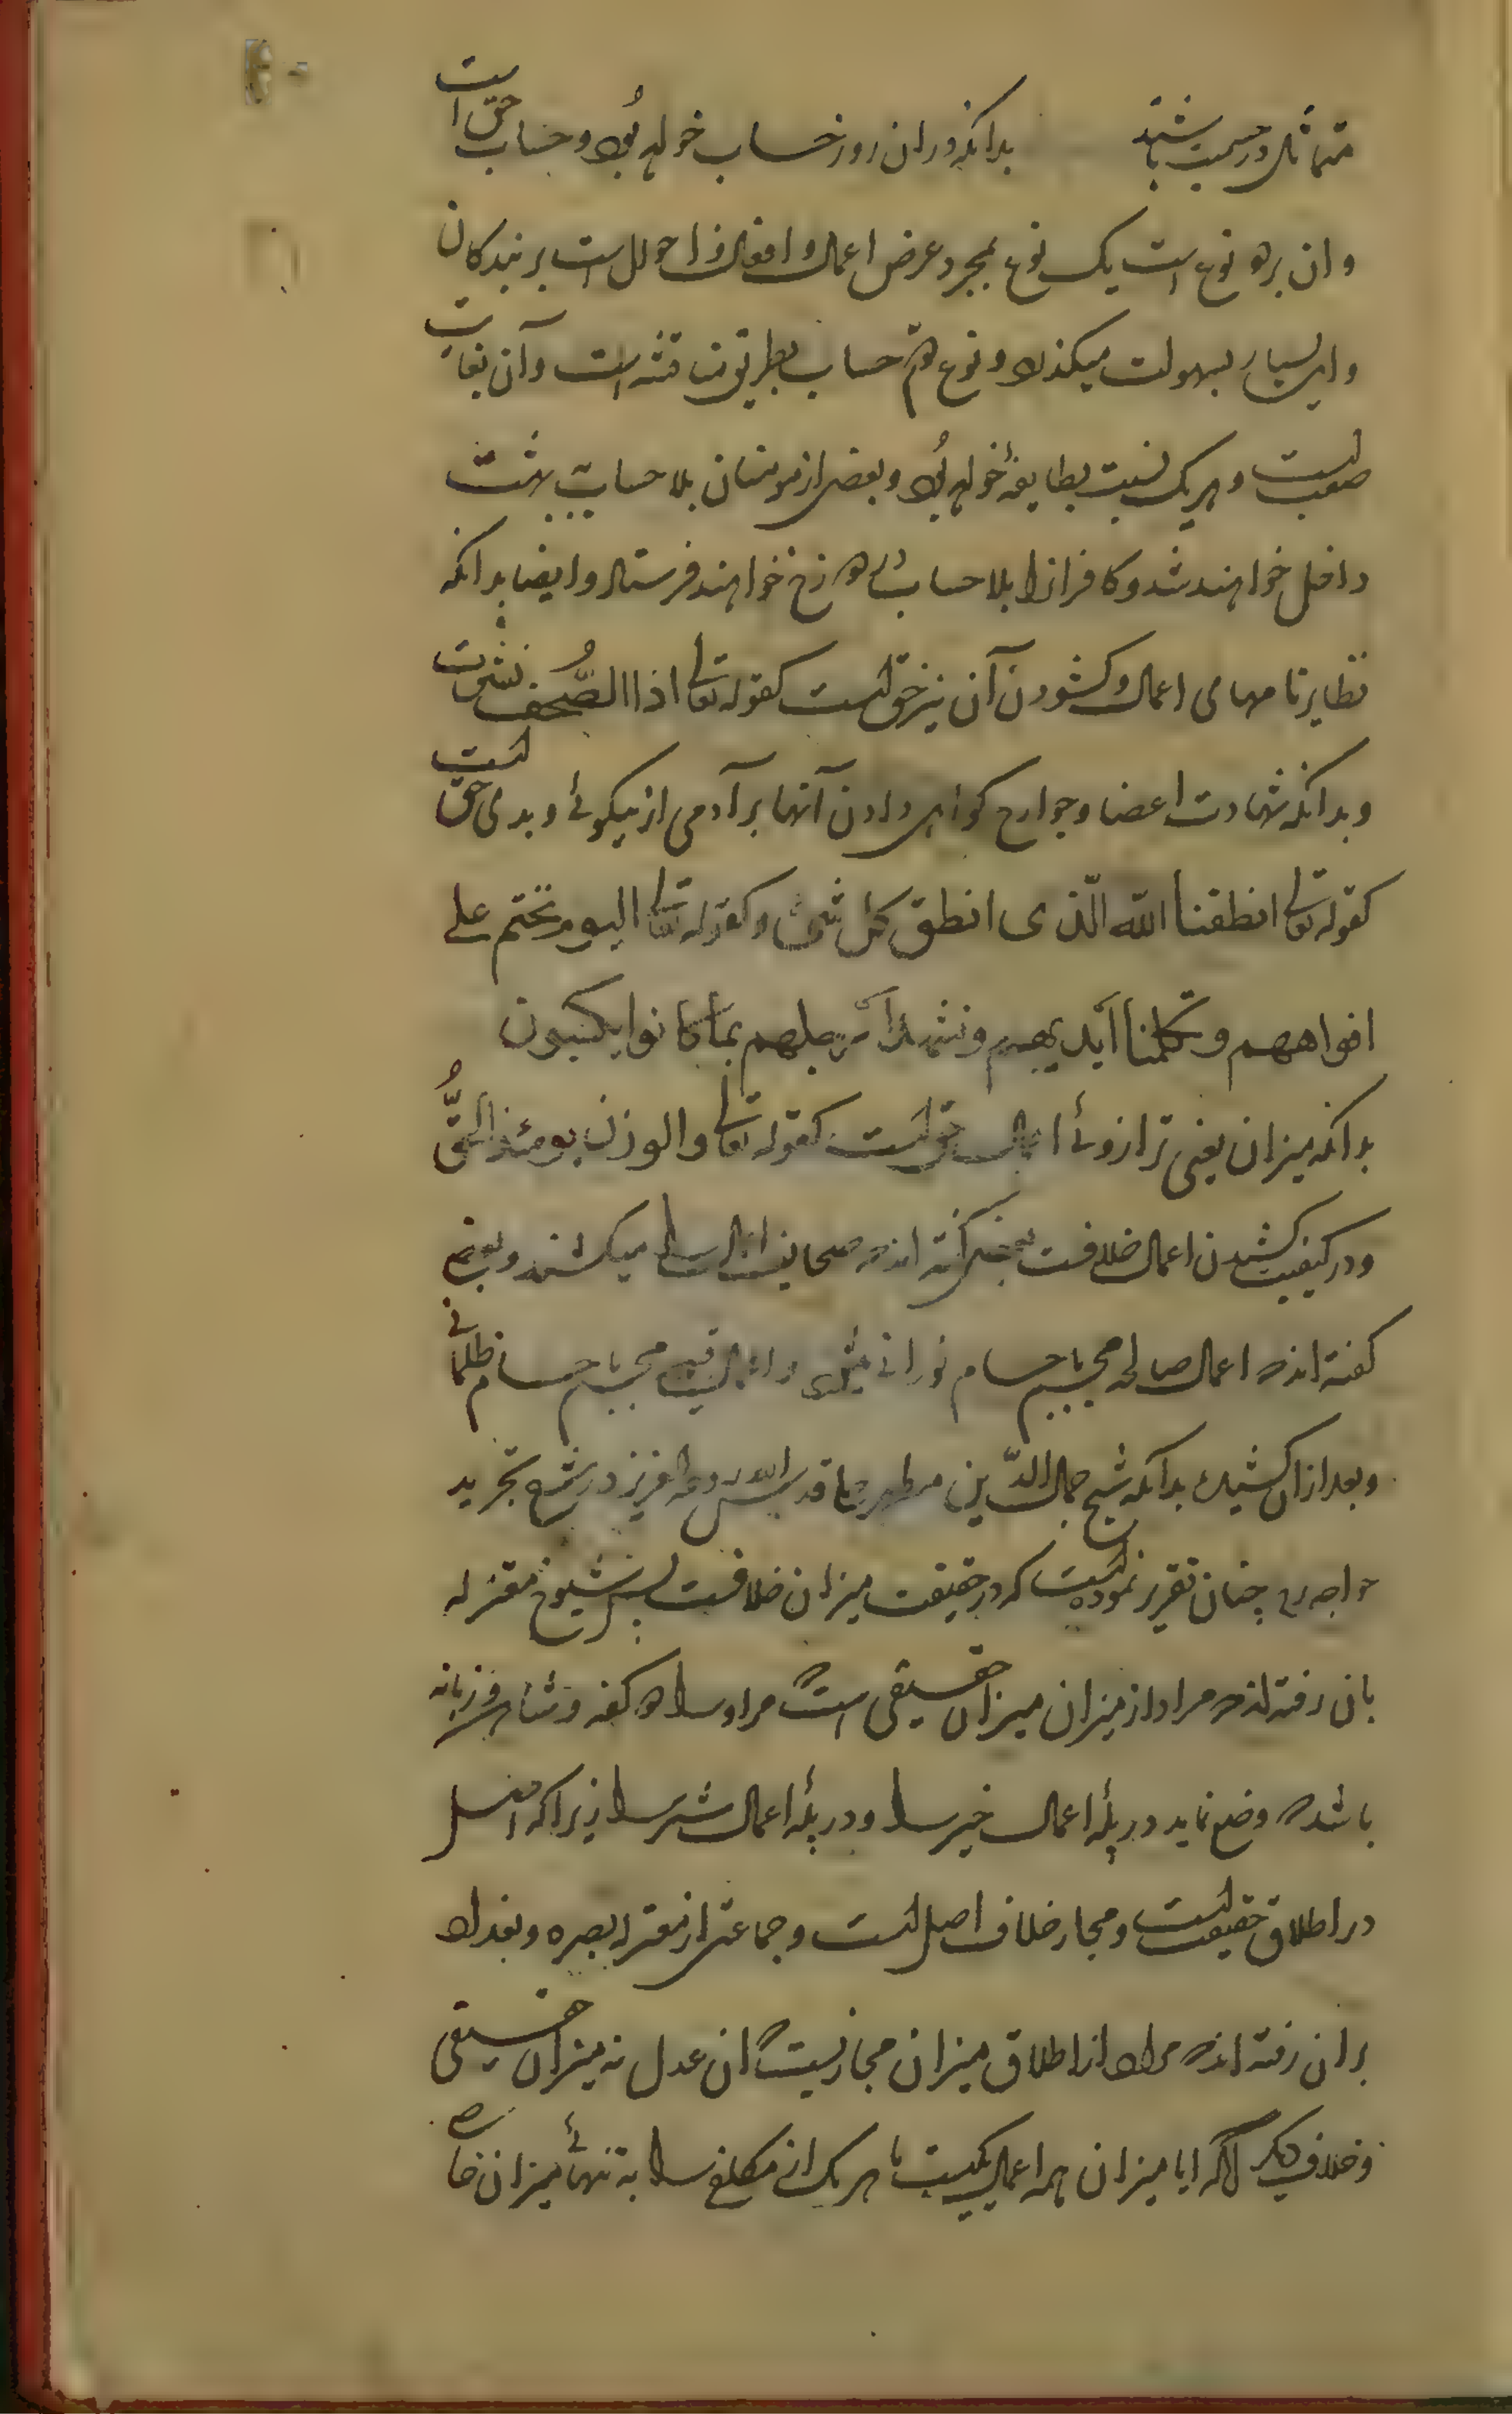 متماثل در جسمیت باشند بدانکه در ان روز حساب خواهد بود و حساب حق است
و ان بر دو نوع است یک نوع بمجرد عرض اعمال و افعال و احوال است بر بندکان
و این بسیار بسهولت میکذرد و نوع دوم حساب بطریق مناقشه است و آن بغایت
صعب است و هر یک نسبت بطایفهٔ خواهد بود و بعضی از مومنان بلا حساب بهشت
داخل خواهند شد و کافرانرا بلا حساب بدوزخ خواهند فرستاد و ایضا بدانکه
تطایر نامهای اعمال و کشودن آن نیز حق است کقوله تعالی اذا الصُّحف نشرت
و بدانکه شهادت اعضا و جوارح کواهی دادن آنها بر آدمی از نیکوئے و بدی حق است
کقوله تعالی انطقنا الله الّذی انطق کل شیٔ و کقوله تعالی الیوم نختم علے
افواههم و تکلمنا ایدیهم و تشهد ارجلهم بما کانوا یکسبون
بدانکه میزان یعنی ترازوئے اعمال حق است کقوله تعالی والوزن یومئذ الحقُّ
و در کیفیت کشیدن اعمال خلافست بعضی کفته اند که صحایف اعمال را میکشند و بعضے
کفته اند که اعمال صالحه مجسم باجسام نورانے میشود و اعمال قبیحه مجسم باجسام ظلمانے
و بعد ازان کشیدن بدانکه شیخ جمال الدّین مطهر حلی قدس الله روحه العزیز در شرح تجرید
خواجه ره چنان تقریر نموده است که در حقیقت میزان خلافست پس شیوخ معتزله
بان رفته اند که مراد از میزان میزان حقیقی است که مر او را دو کفه و شاهین و زبانه
باشد که وضع نماید در پلهٔ اعمال خیر را و در پلهٔ اعمال شر را زیرا که اصل
در اطلاق حقیقت است و مجاز خلاف اصل است و جماعتی از معتزله بصره و بغداد
بر ان رفته اند که مراد از اطلاق میزان مجازیست که ان عدل نه میزان حقیقی
و خلاف دیکر آنکه ایا میزان همه اعمال یکیست یا هر یک از مکلف را به تنهائے میزان خاص